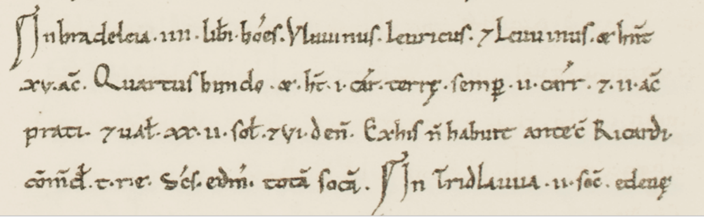 In bradeleia .IIII. lib̄i hōes. Vluuinus. Leuricus. ⁊ Leuuinus. & hn̄t
.xv. ac̄. Quartus bundo. & ht̄. I. car̄. terrę. semꝑ. II. carr̄. ⁊. II. ac̄
prati. ⁊ ual̄. xx. II. sol̄. ⁊ VI. den̄. Ex his n̄ habuit antec̄ Ricardi.
cōmd̄. t. r. e. Sc̄s. edm̄. totā socā. In Tridlauua. II. soc̄. edeuę